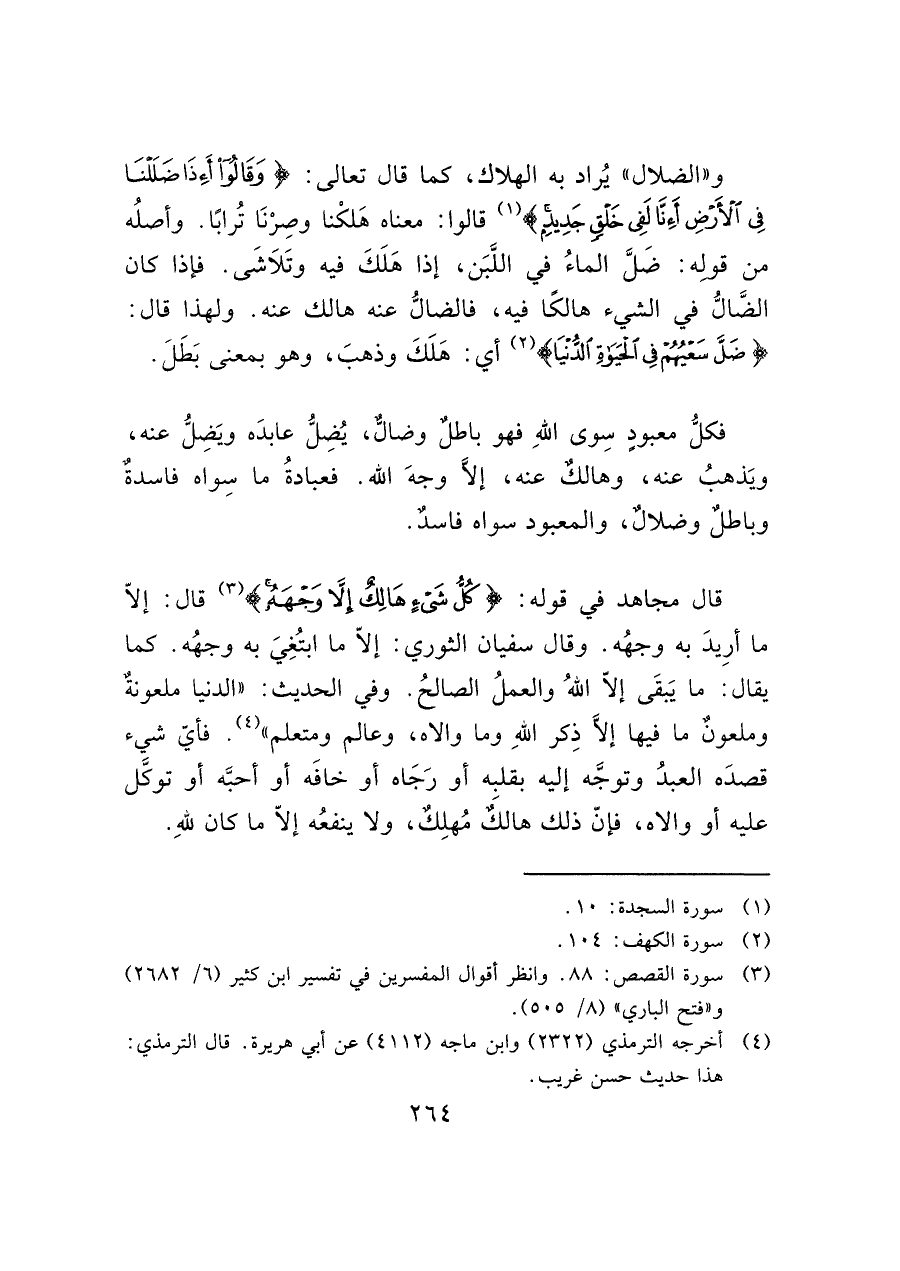 و«الضلال» يُراد به الهلاك، كما قال تعالى: ﴿ وَقَالُوٓا۟ أَءِذَا ضَلَلْنَا
فِى ٱلْأَرْضِ أَءِنَّا لَفِى خَلْقٍ جَدِيدٍۭ ﴾(١) قالوا: معناه هَلكْنا وصِرْنَا تُرابًا. وأصلُه
من قولِه: ضَلَّ الماءُ في اللَّبَن، إذا هَلَكَ فيه وتَلَاشَى. فإذا كان
الضَّالُّ في الشيء هالكًا فيه، فالضالُّ عنه هالك عنه. ولهذا قال:
﴿ ضَلَّ سَعْيُهُمْ فِى ٱلْحَيَوٰةِ ٱلدُّنْيَا﴾(٢) أي: هَلَكَ وذهبَ، وهو بمعنى بَطَلَ.
فكلُّ معبودٍ سِوى اللهِ فهو باطلٌ وضالٌّ، يُضِلُّ عابدَه ويَضِلُّ عنه،
ويَذهبُ عنه، وهالكٌ عنه، إلاَّ وجهَ الله. فعبادةُ ما سِواه فاسدةٌ
وباطلٌ وضلالٌ، والمعبود سواه فاسدٌ.
قال مجاهد في قوله: ﴿ كُلُّ شَىْءٍ هَالِكٌ إِلَّا وَجْهَهُۥۚ﴾(٣) قال: إلاّ
ما أرِيدَ به وجهُه. وقال سفيان الثوري: إلاّ ما ابتُغِيَ به وجهُه. كما
يقال: ما يَبقَى إلاّ اللهُ والعملُ الصالحُ. وفي الحديث: «الدنيا ملعونةٌ
وملعونٌ ما فيها إلاَّ ذِكر اللهِ وما والاه، وعالم ومتعلم»(٤). فأيّ شيء
قصدَه العبدُ وتوجَّه إليه بقلبِه أو رَجَاه أو خافَه أو أحبَّه أو توكَّل
عليه أو والاه، فإنّ ذلك هالكٌ مُهلِكٌ، ولا ينفعُه إلاّ ما كان للهِ.
(١) سورة السجدة: ١٠.
(٢) سورة الكهف: ١٠٤.
(٣) سورة القصص: ٨٨. وانظر أقوال المفسرين في تفسير ابن كثير (٦/ ٢٦٨٢)
و«فتح الباري» (٨/ ٥٠٥).
(٤) أخرجه الترمذي (٢٣٢٢) وابن ماجه (٤١١٢) عن أبي هريرة. قال الترمذي:
هذا حديث حسن غريب.
٢٦٤